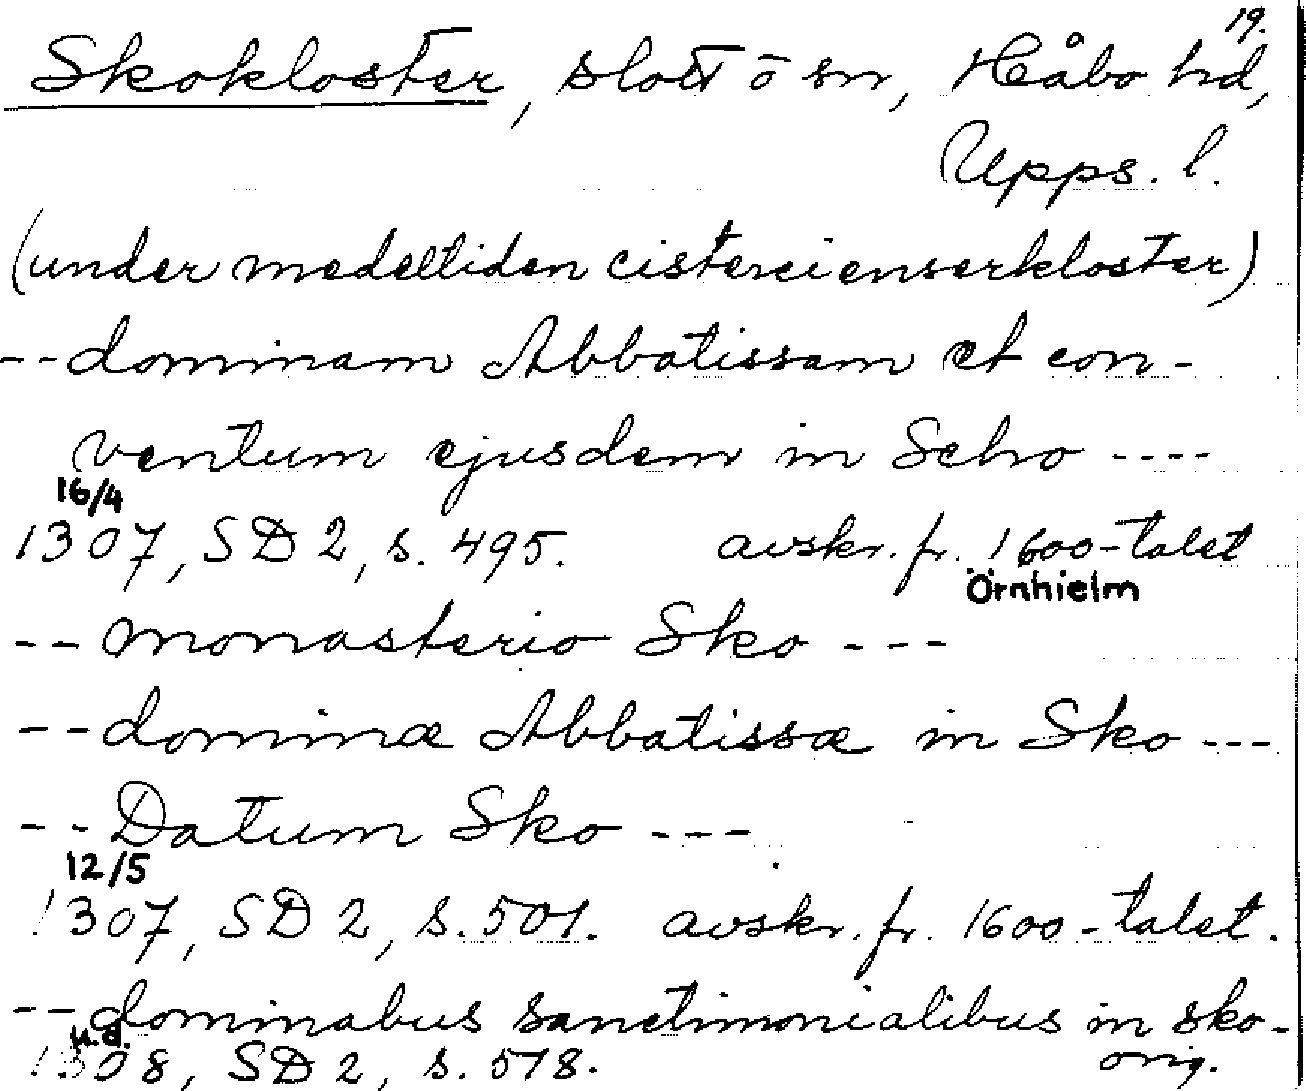 19.
Skokloster, slott o sn, Håbo hd,
Upps. l.
(under medeltiden cistercienserkloster)
-- dominam Abbatissam et con-
ventum ejusdem in Scho ----
16/4
1307, SD 2, s. 495. avskr. fr. 1600-talet
Örnhielm
-- monasterio Sko ---
-- dominæ Abbatissæ in Sko ---
-- Datum Sko ---
12/5
1307, SD 2, s. 501. avskr. fr. 1600-talet.
-- dominabus sanctimonialibus in sko-
u.d.
1308, SD 2, s. 578. orig.